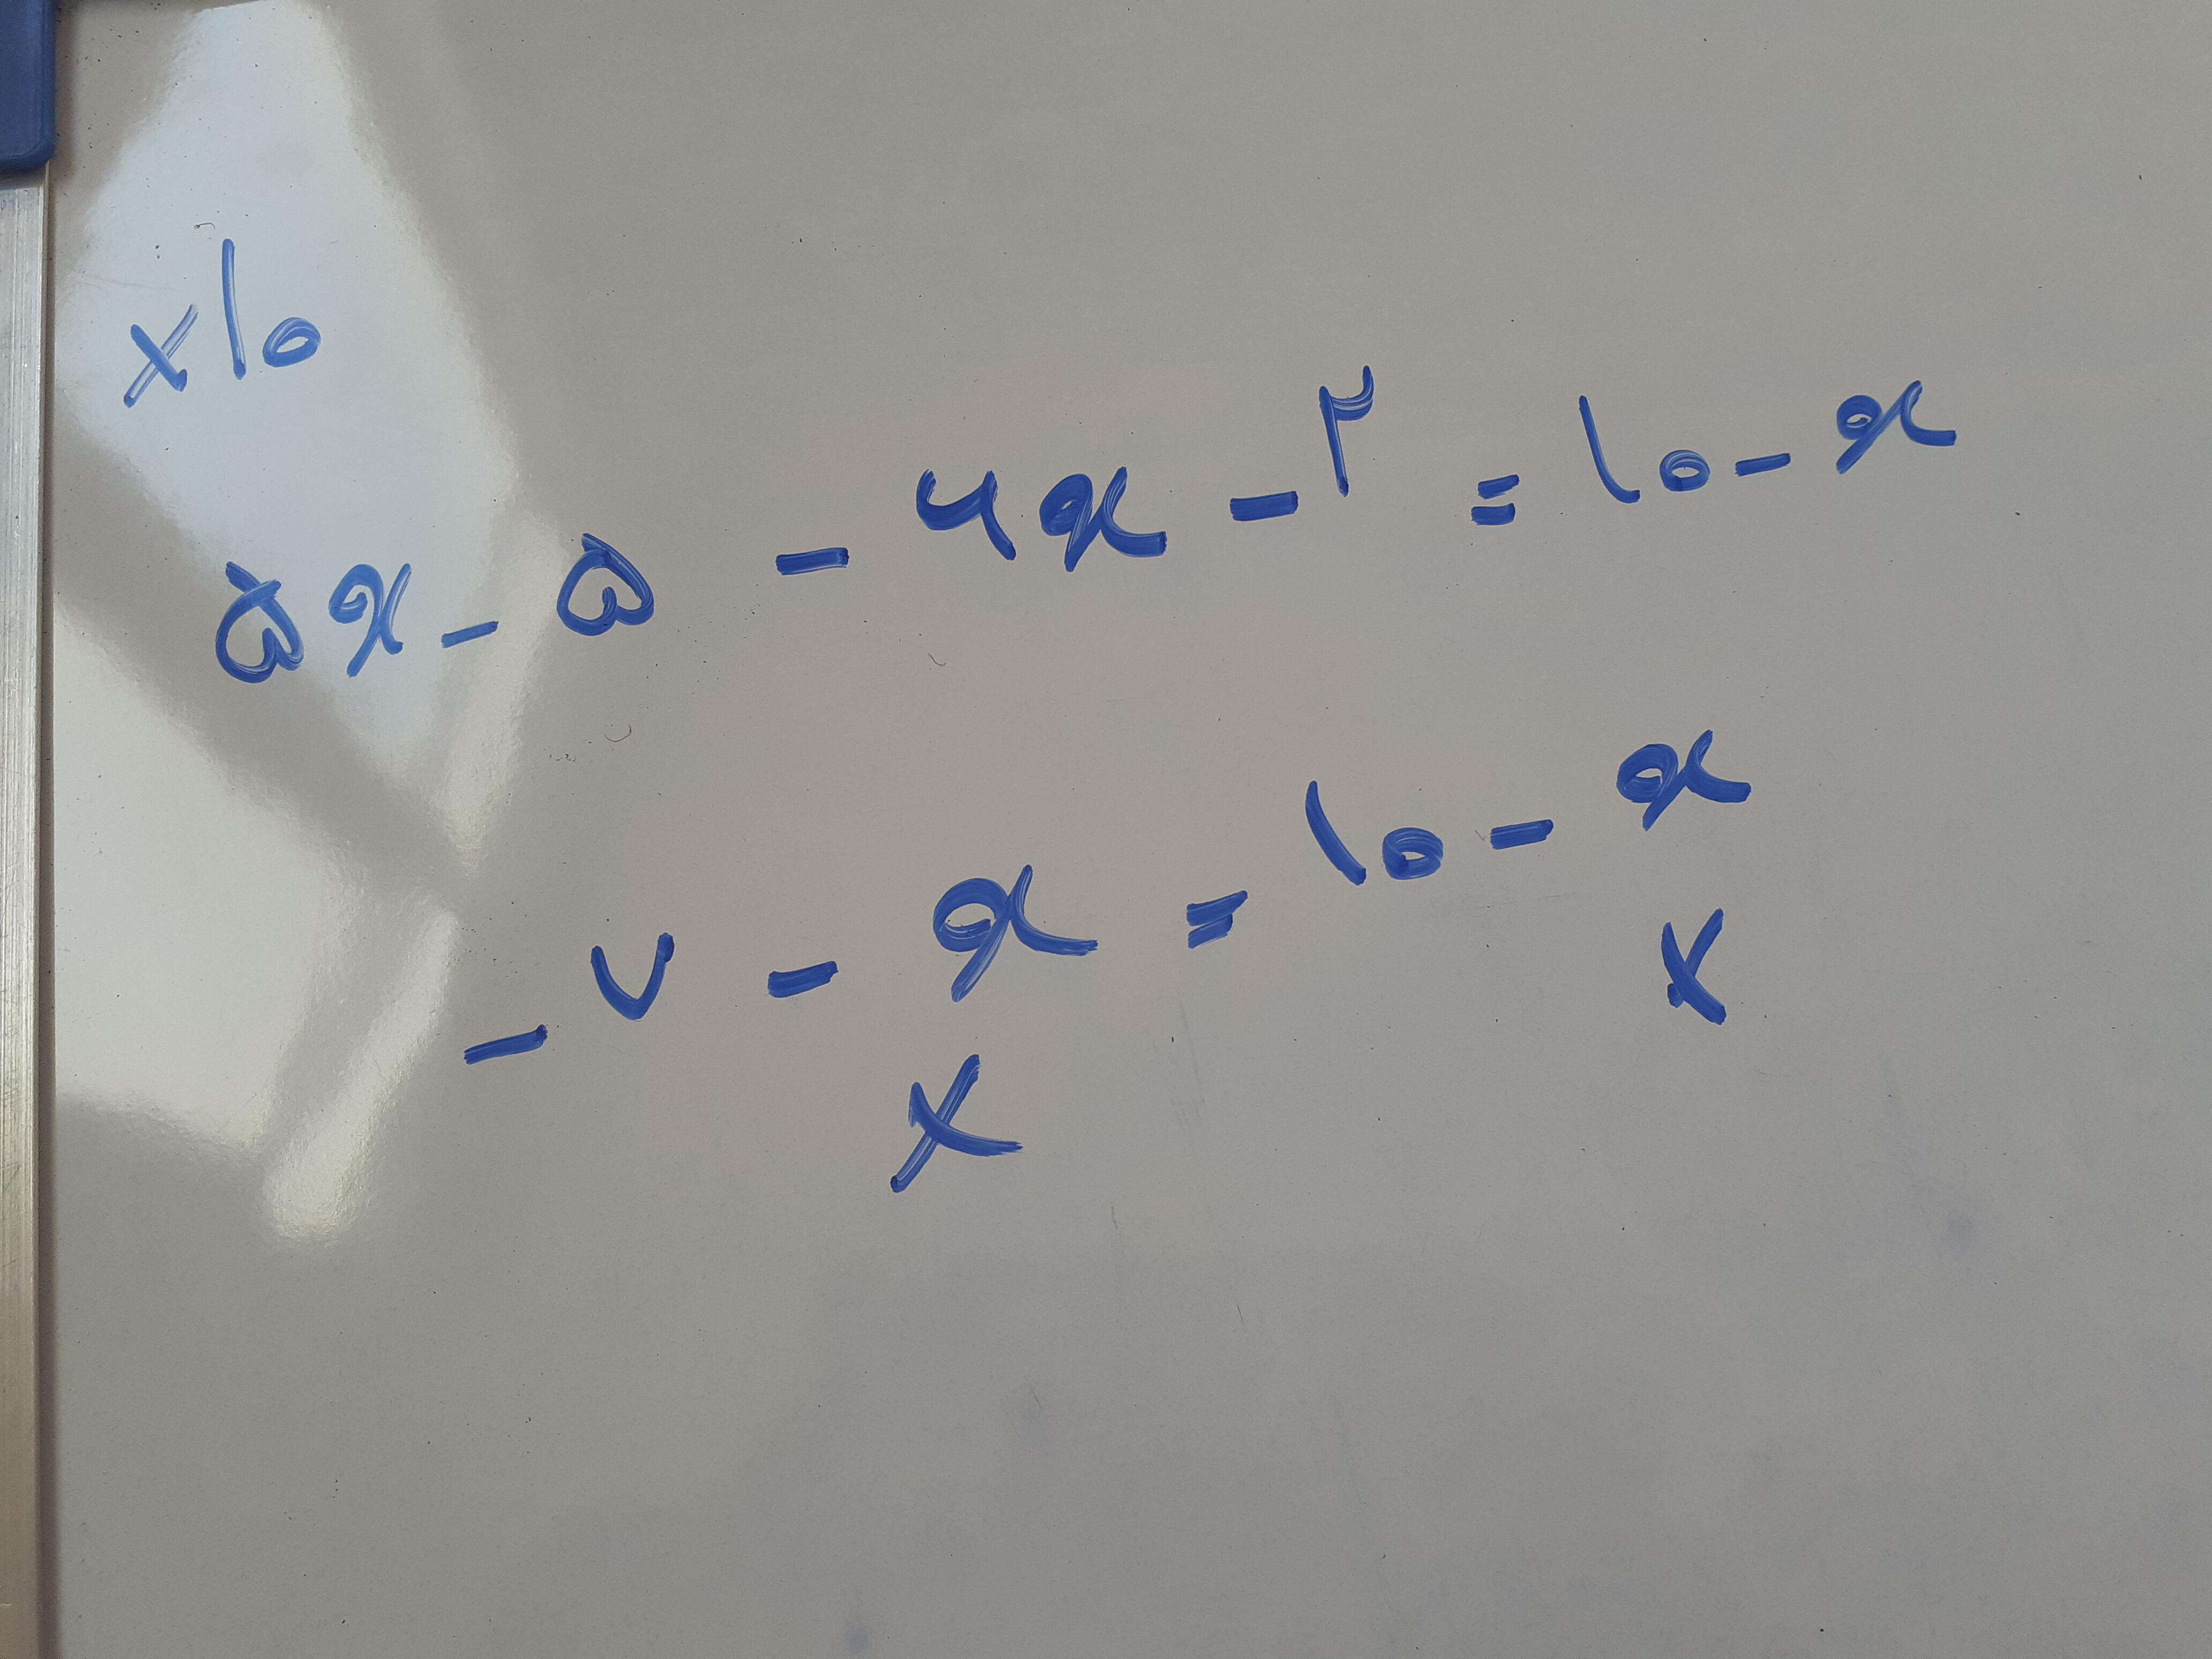 ×۱۰
۵x - ۵ - ۶x - ۲ = ۱۰ - x
- ۷ - x = ۱۰ - x
× ×